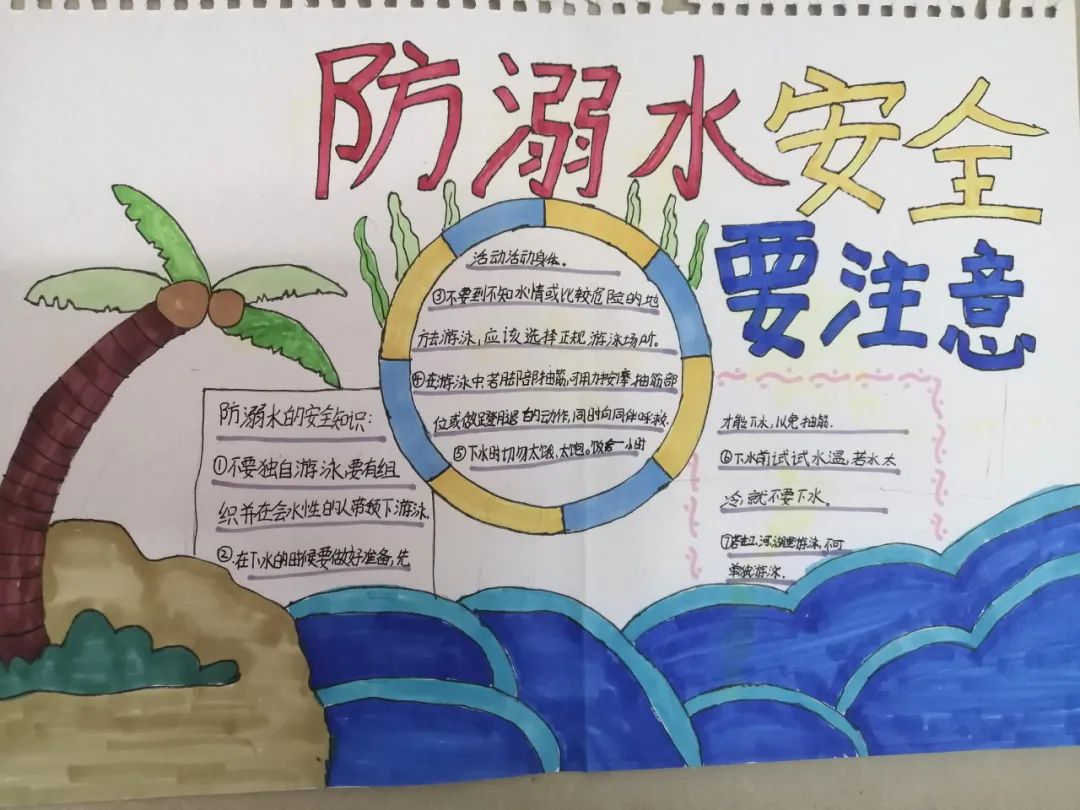 防溺水安全
要注意
防溺水的安全知识:
①不要独自游泳,要有组
织并在会水性的人带领下游泳.
②.在下水的时候要做好准备,先
活动活动身体。
③不要到不知水情或比较危险的地
方去游泳,应该选择正规游泳场所.
④在游泳中若脚部抽筋,可用力按摩抽筋部
位或做蹬腿的动作,同时向同伴呼救.
⑤下水时切勿太饿、太饱。饭后一小时
才能下水,以免抽筋.
⑥下水前试试水温,若水太
冷,就不要下水。
⑦若在江、河、湖里游泳,不可
单独游泳.